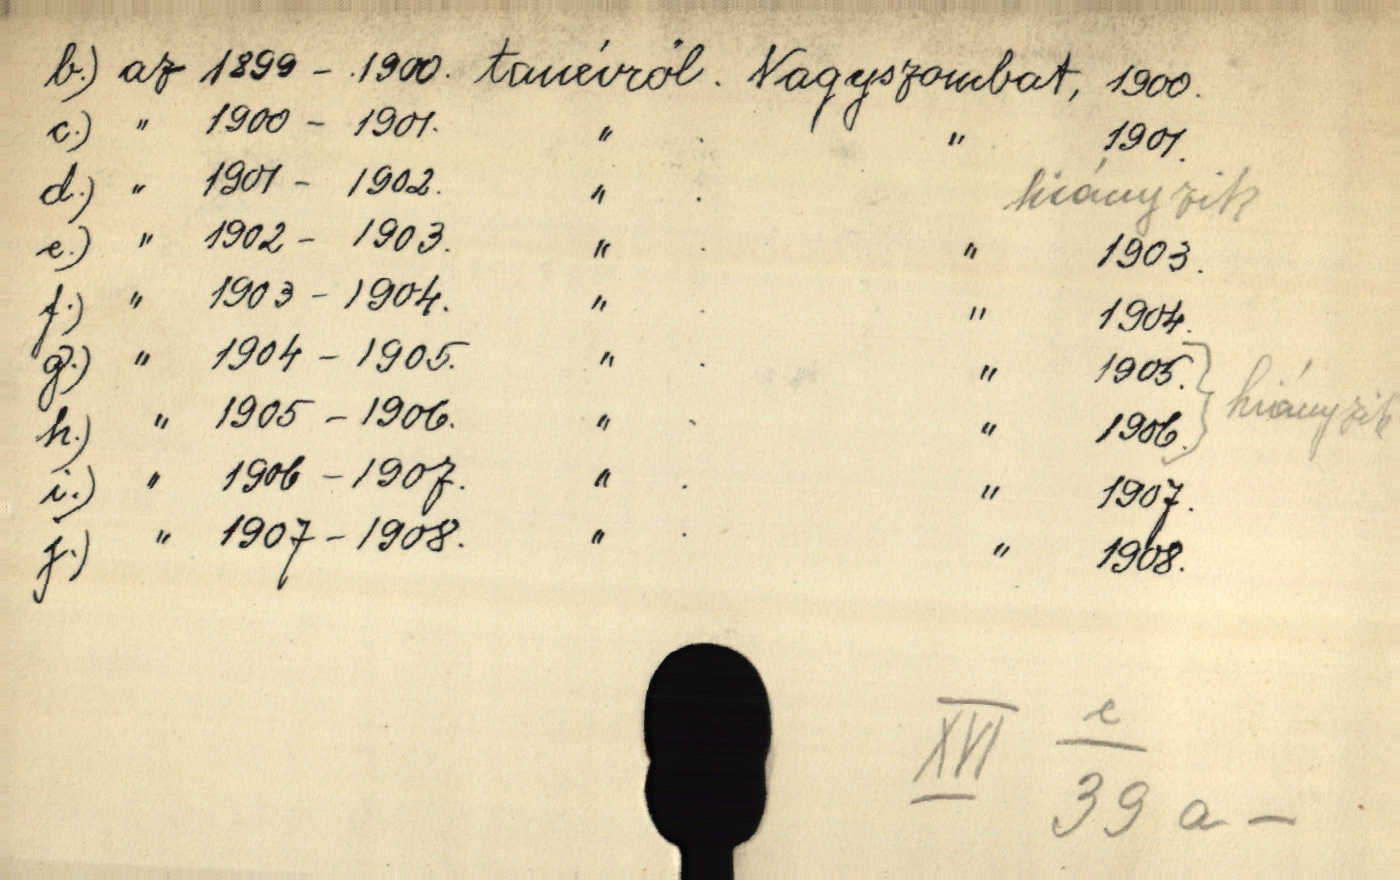 b.) az 1899 - 1900. tanévről. Nagyszombat, 1900.
c.) " 1900 - 1901. " . " 1901.
d.) " 1901 - 1902. " . hiányzik
e.) " 1902 - 1903. " . " 1903.
f.) " 1903 - 1904. " . " 1904.
g.) " 1904 - 1905. " . " 1905. } hiányzik
h.) " 1905 - 1906. " . " 1906.
i.) " 1906 - 1907. " . " 1907.
j.) " 1907 - 1908. " . " 1908.
XVI e
39 a -